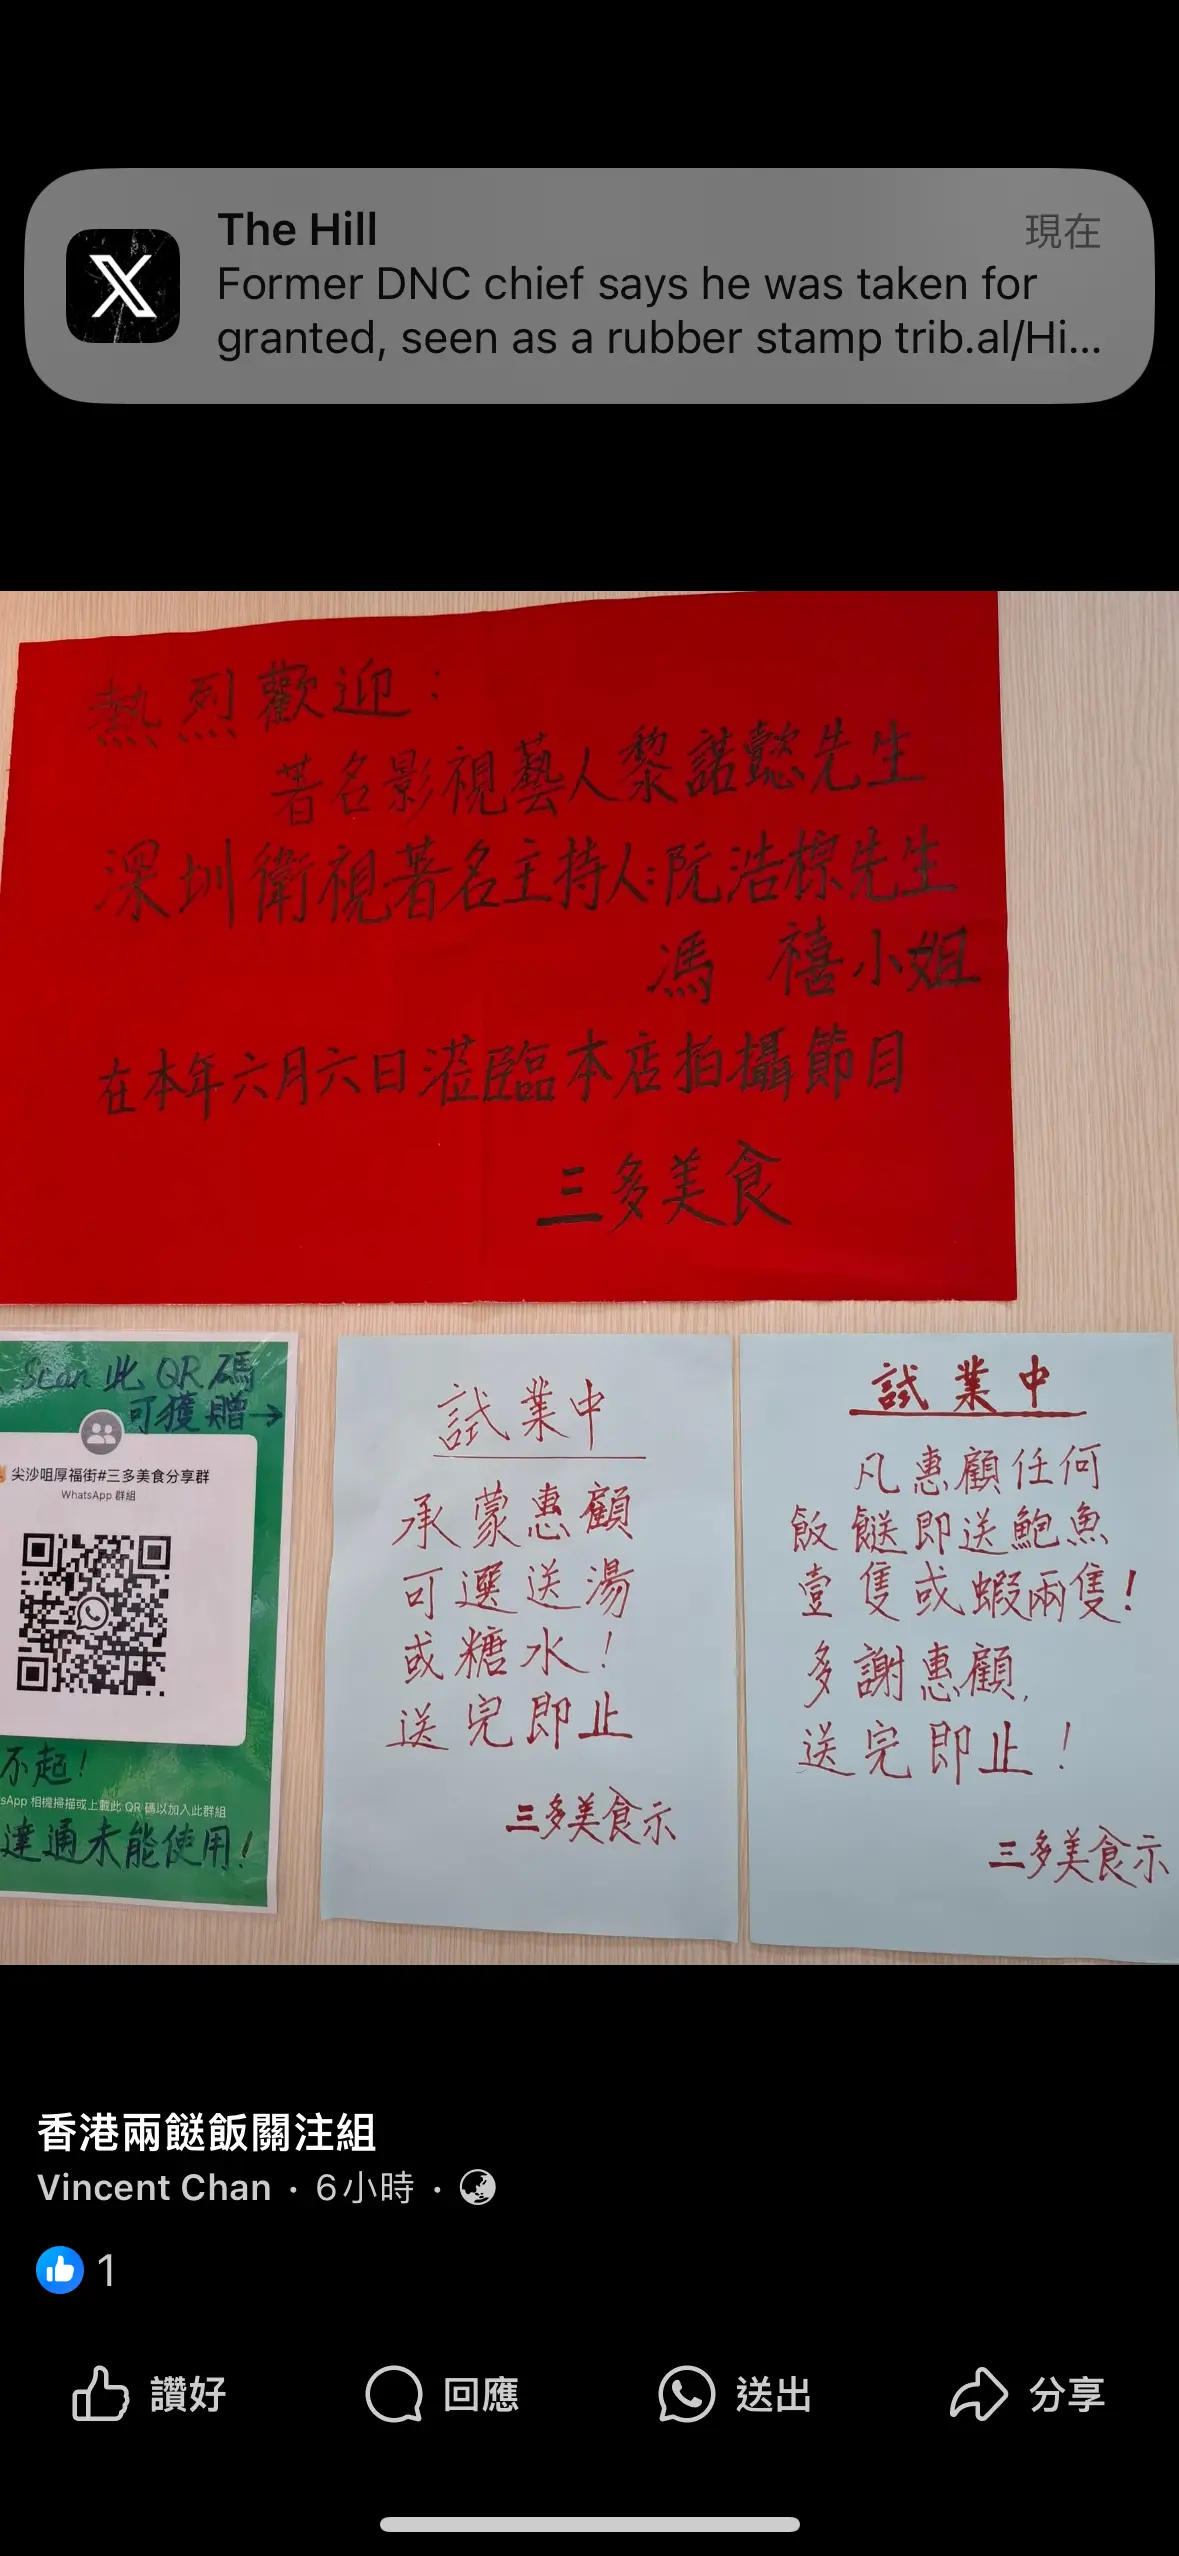 The Hill
現在
Former DNC chief says he was taken for
granted, seen as a rubber stamp trib.al/Hi...
熱烈歡迎：
著名影視藝人黎諾懿先生
深圳衛視著名主持人:阮浩棕先生
馮 禧小姐
在本年六月六日蒞臨本店拍攝節目
三多美食
Scan 此 QR 碼
可獲贈→
尖沙咀厚福街#三多美食分享群
WhatsApp 群組
不起!
sApp 相機掃描或上載此 QR 碼以加入此群組
達通未能使用!
試業中
承蒙惠顧
可選送湯
或糖水!
送完即止
三多美食示
試業中
凡惠顧任何
飯餸即送鮑魚
壹隻或蝦兩隻!
多謝惠顧,
送完即止!
三多美食示
香港兩餸飯關注組
Vincent Chan · 6小時 ·
1
讚好
回應
送出
分享